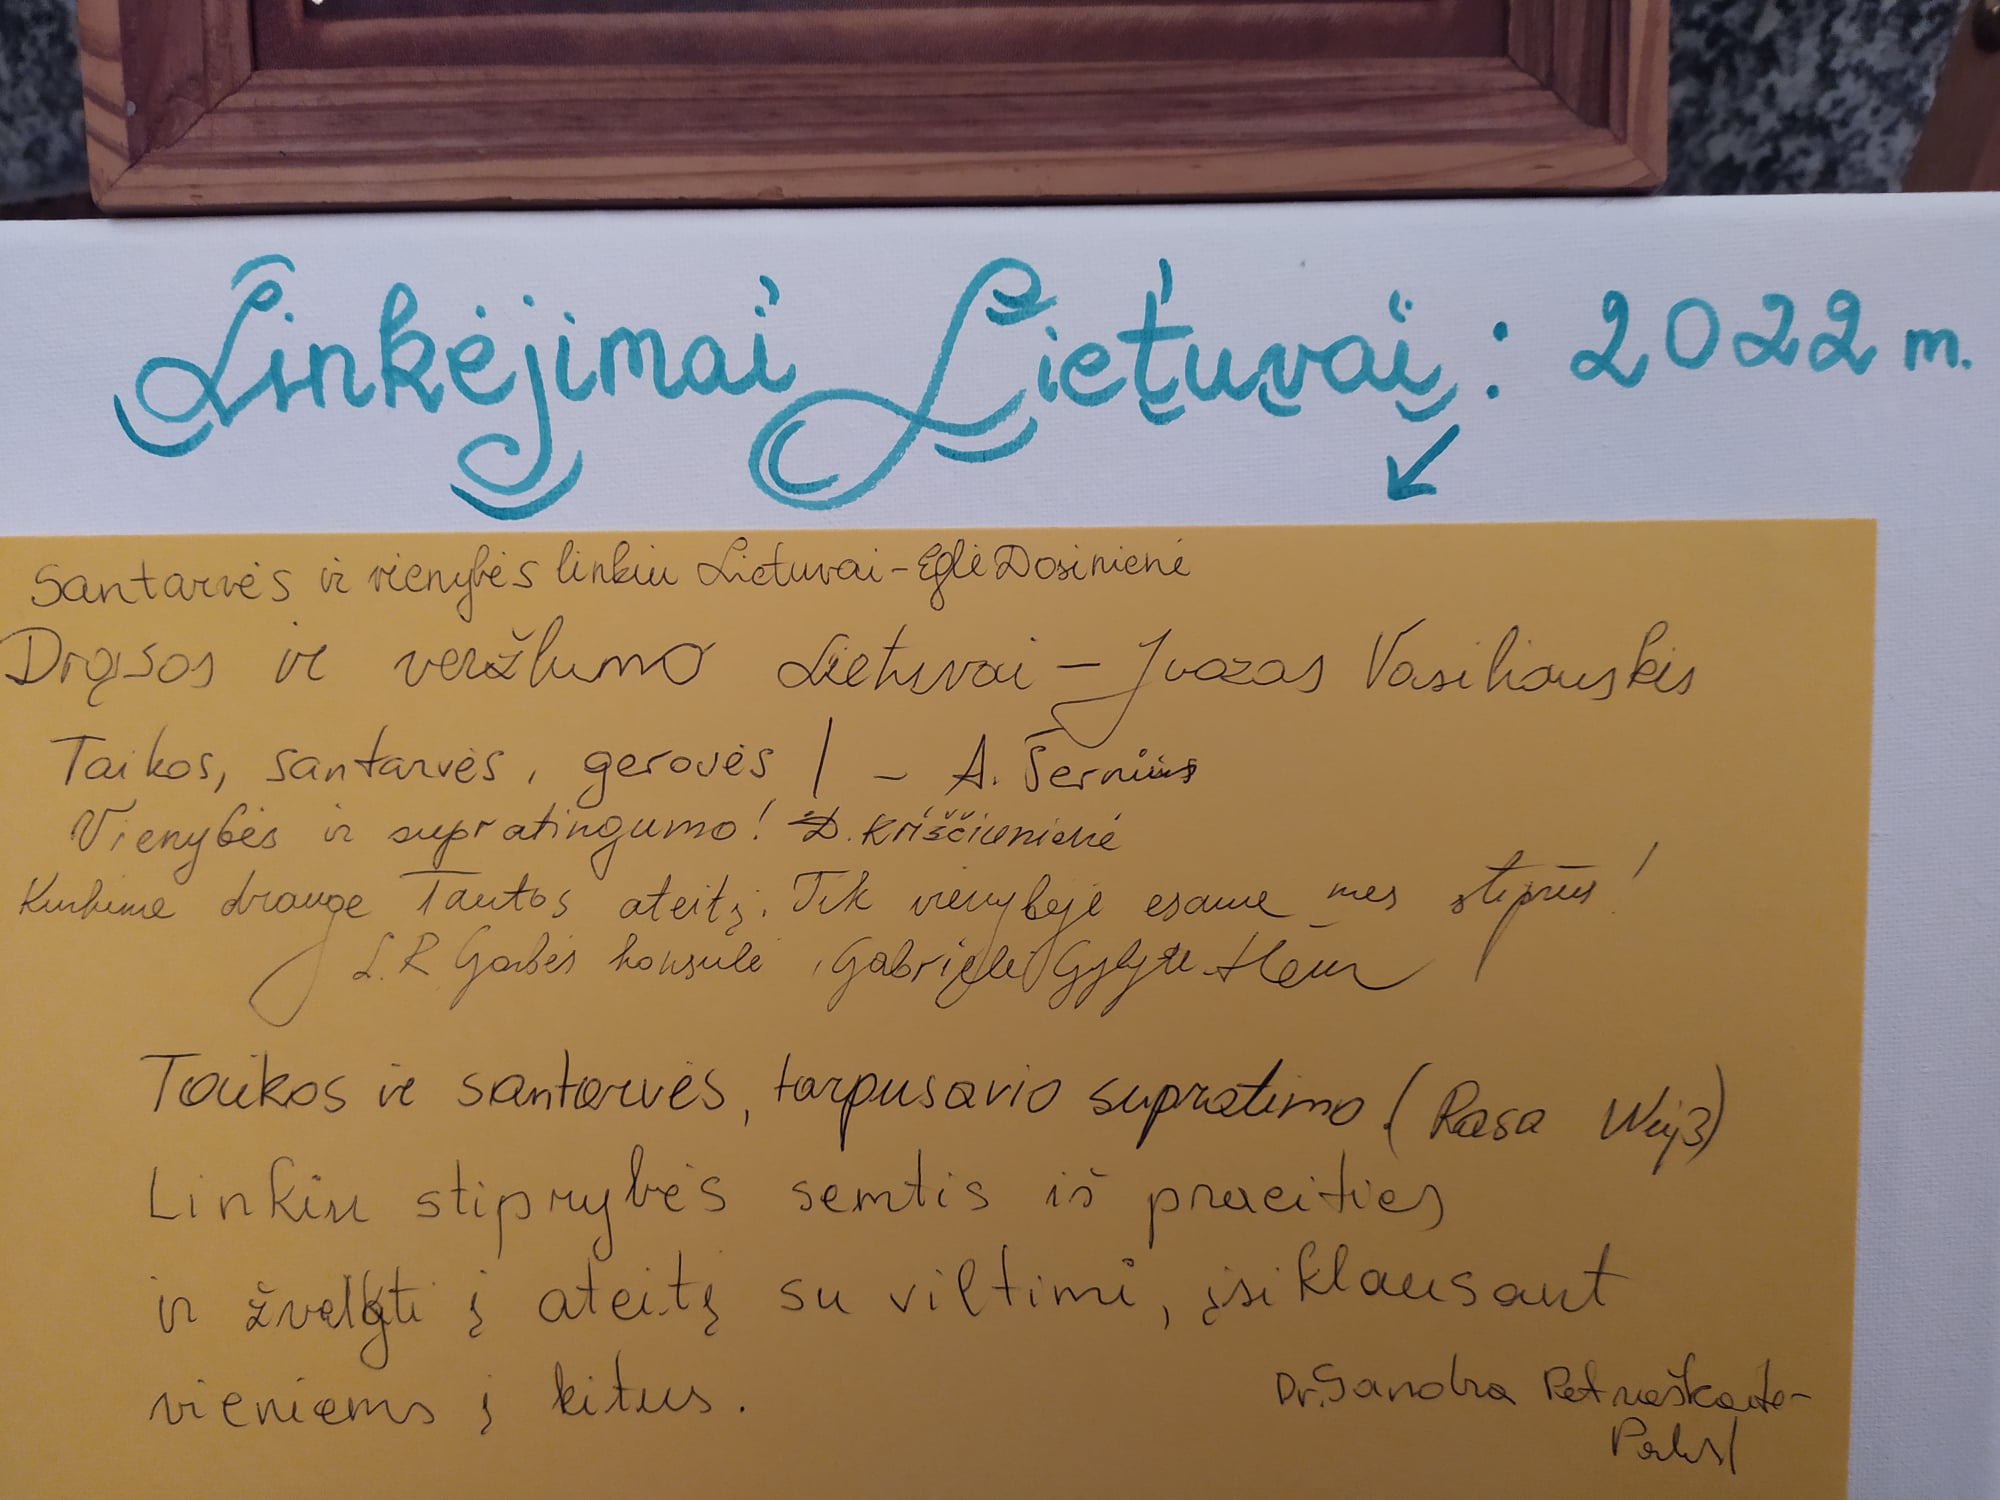 Linkėjimai Lietuvai: 2022 m.
Santarvės ir vienybės linkiu Lietuvai - Eglė Dosinienė
Drąsos ir veržlumo Lietuvai - Juozas Vasiliauskis
Taikos, santarvės, gerovės! - A. Šernius
Vienybės ir supratingumo! D. Kriščiūnienė
Kurkime drauge Tautos ateitį. Tik vienybėje esame mes stiprūs!
L.R Garbės konsulė, Gabrielė Gylytė-Hein
Taikos ir santarvės, tarpusavio supratimo. (Rasa Weiß)
Linkiu stiprybės semtis iš praeities
ir žvelgti į ateitį su viltimi, įsiklausant
vieniems į kitus.
Dr. Sandra Petraškaitė-